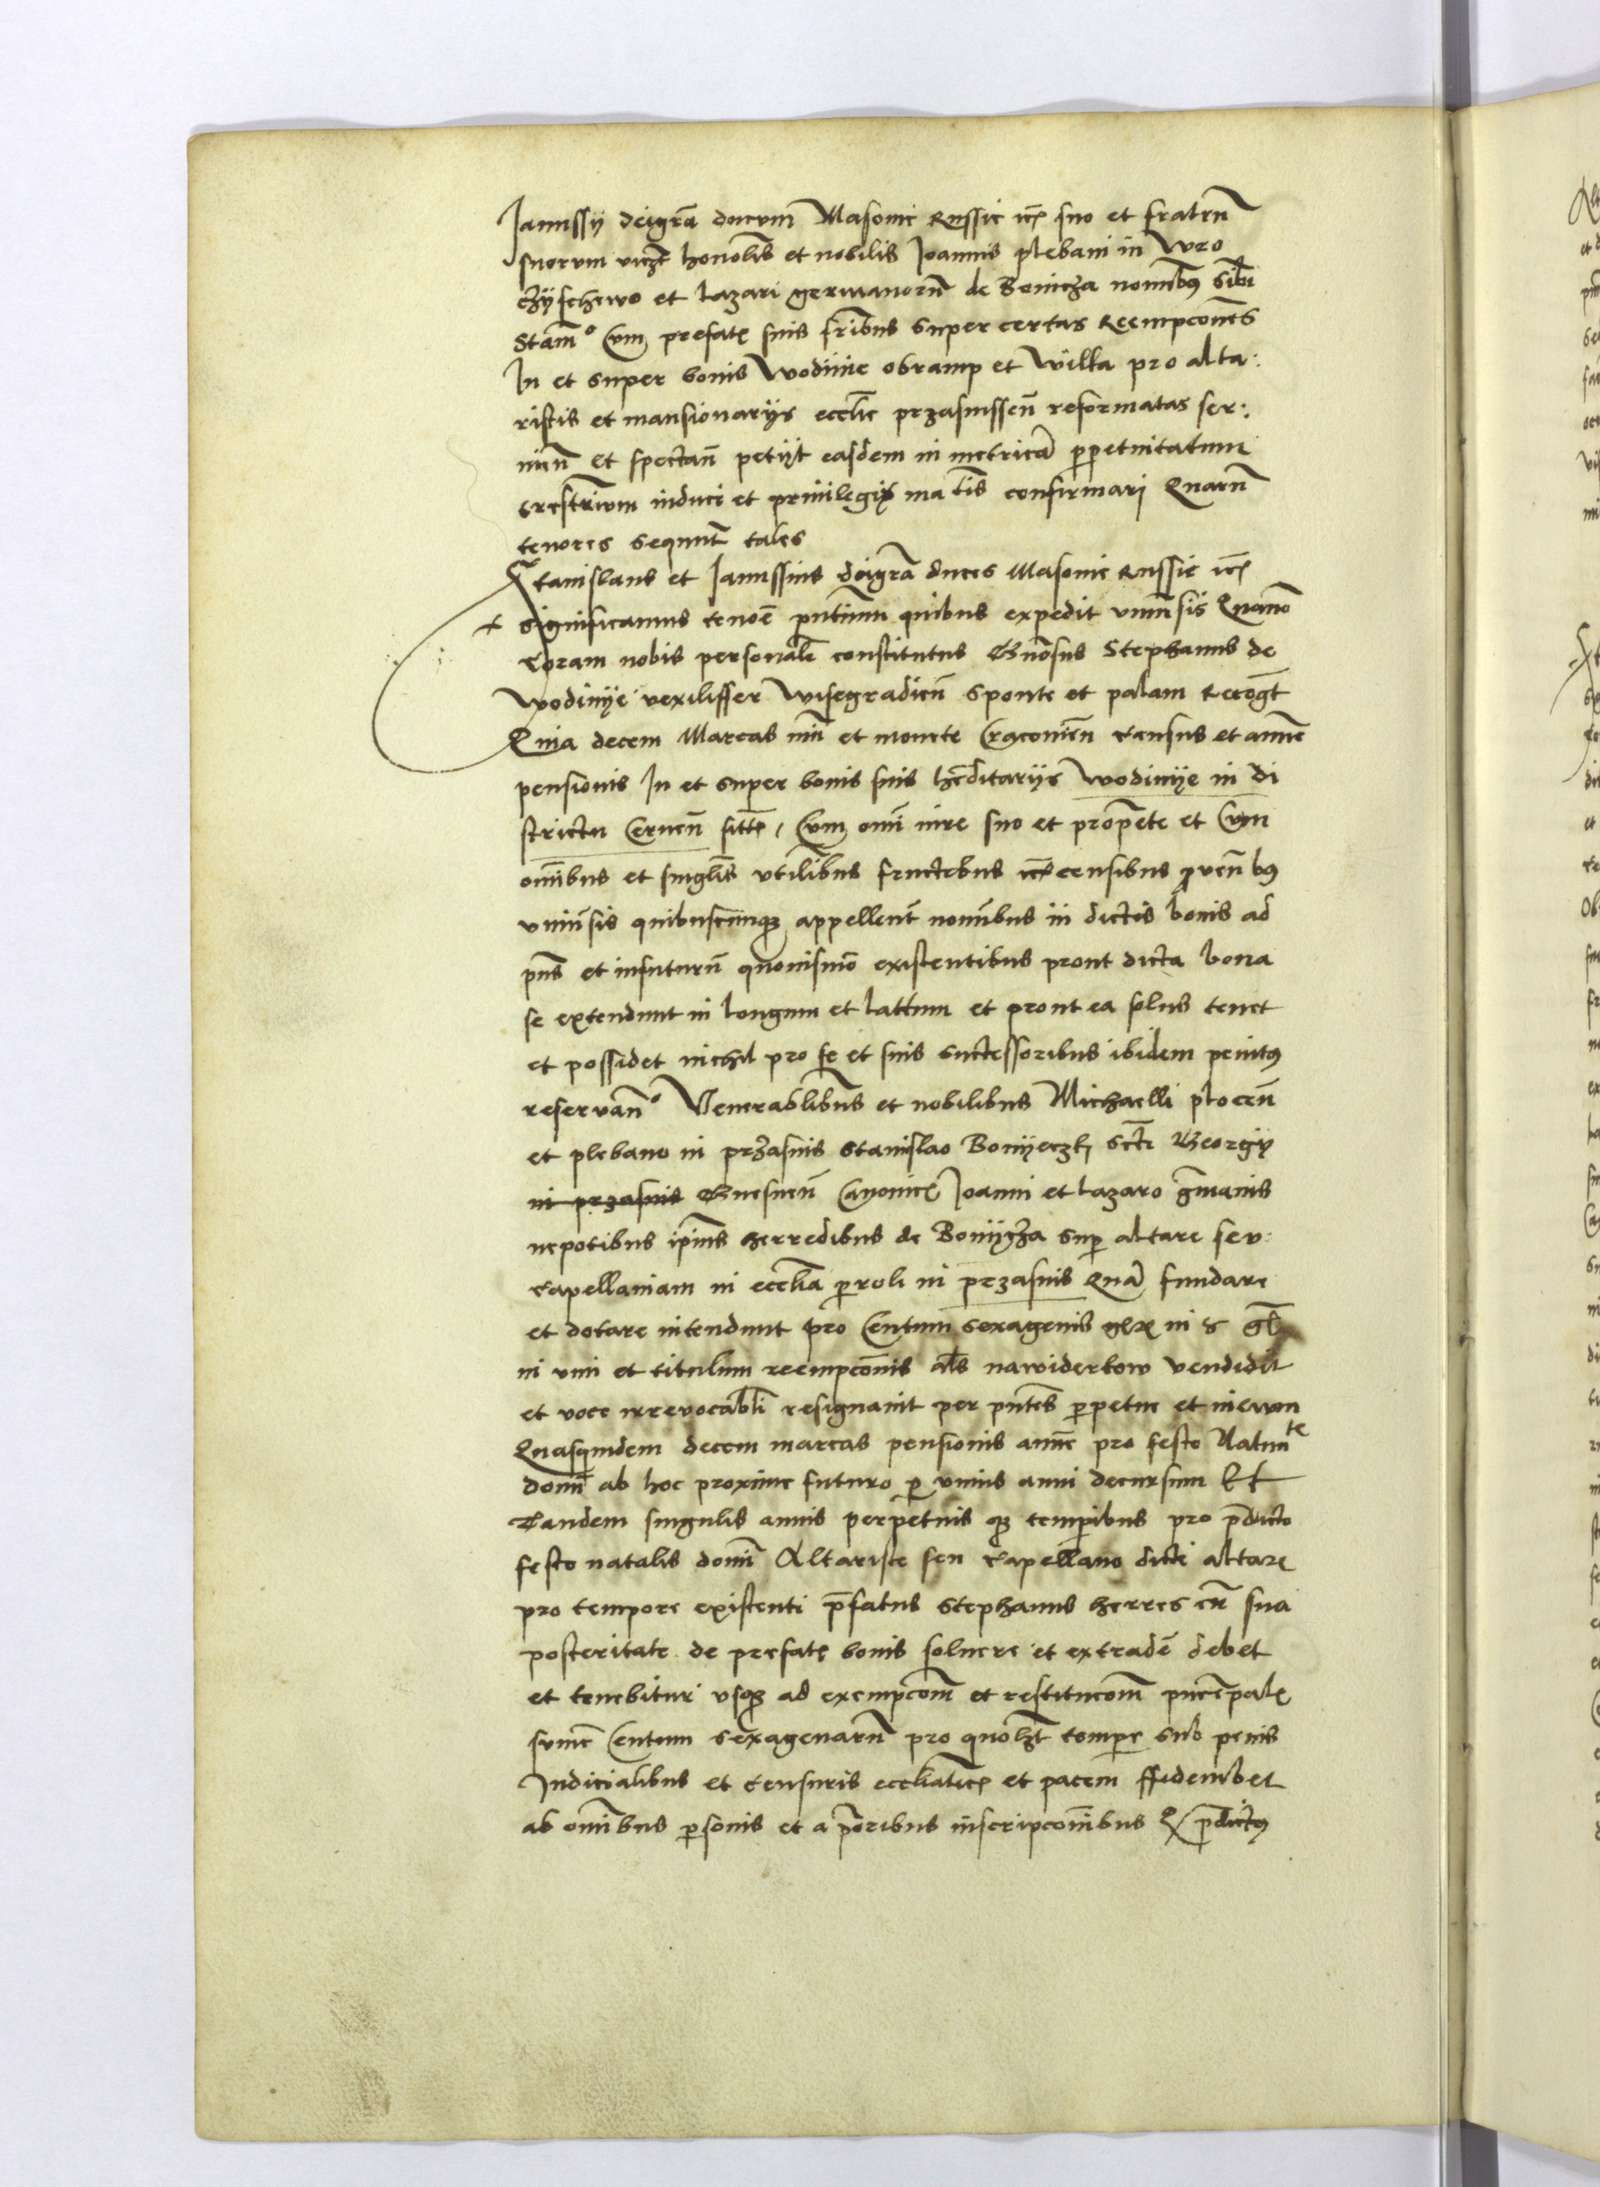 Janussij deigrã ducum Masovie Russie etc suo et fratrũ
suorum viczt honobilis et nobilis Joannis plebani in Wro
czÿschewo et Lazari germanorũ de Boniecza nominibus sibi
In et super bonis Wodinie obramp et Wilka pro alta:
ristis et mansionarijs ecclie przasnissen̄ reformatas ser:
nien̄ et spectan̄ petijt easdem in metricã ppetuitatum
trestrium induci et privilegijs confirmari Quarũ
tenores sequntur tales
Stanislaus et Janussius deigrã duces Masovie Russie etc
Significamus tenore pntium quibus expedit univsis Quomo
Coram nobis personalr constitutus Gnosus Stephanus de
Wodinije vexilisser Wisegradien̄ sponte et palam Recogt
Quia decem Marcas nũi et monete Cracovien̄ Census et annue
pensionis In et super bonis suis hẽditarijs Wodinije in di
strictu Cernen̄ sitis, Cum omni iure suo et propte et Cum
omnibus et singlis utilibus fructibus etc censibus pvenbus
univsis quibuscunque appellent nominibus in dictis bonis ad
pns et infuturũ quovismo existentibus prout dicta bona
se extendunt in longum et lattum et prout ea solus tenet
et possidet nichil pro se et suis successoribus ibidem penitus
reservan̄o Venerablibus et nobilibus Michaelli plocen̄
et plebano in przasnis Stanislao Bonijeczki Scti Georgij
in przasnis Gnesnen̄ Canonicis Joanni et Lazaro gmanis
nepotibus ipius herredibus de Bonijecza sup altare seu:
Capellaniam in ecclia proli in przasnis Quã fundare
et dotare intendunt pro Centum sexagenis
in vim et titulum reempconis als nawiderkow vendidit
et voce irrevocabli resignavit per pntes ppetue et inevum
Quasquidem decem marcas pensionis annue pro festo Nativite
domi ab hoc proxime futuro p unius anni decursum Et
Tandem singulis annis perpetuis que tempibus pro pdicto
festo natalis domi Altariste seu Capellano dicti altaris
pro tempore existenti pfatus Stephanus herres cũ sua
posteritate de prefatis bonis solvere et extrade debet
et tenebitur usque ad exempcom et restitucom pncipalis
summe Centum sexagenarũ pro quolzt tempe sub penis
Judicialibus et censuris eccliaticis et pacem ffidembet
ab omibus psonis et a prioribus inscripconibus Qx pdictus